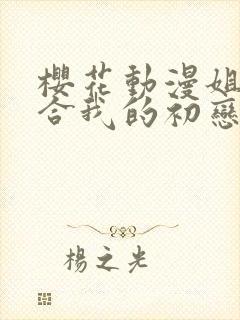 櫻花動漫姐
合我的初戀
楊之光